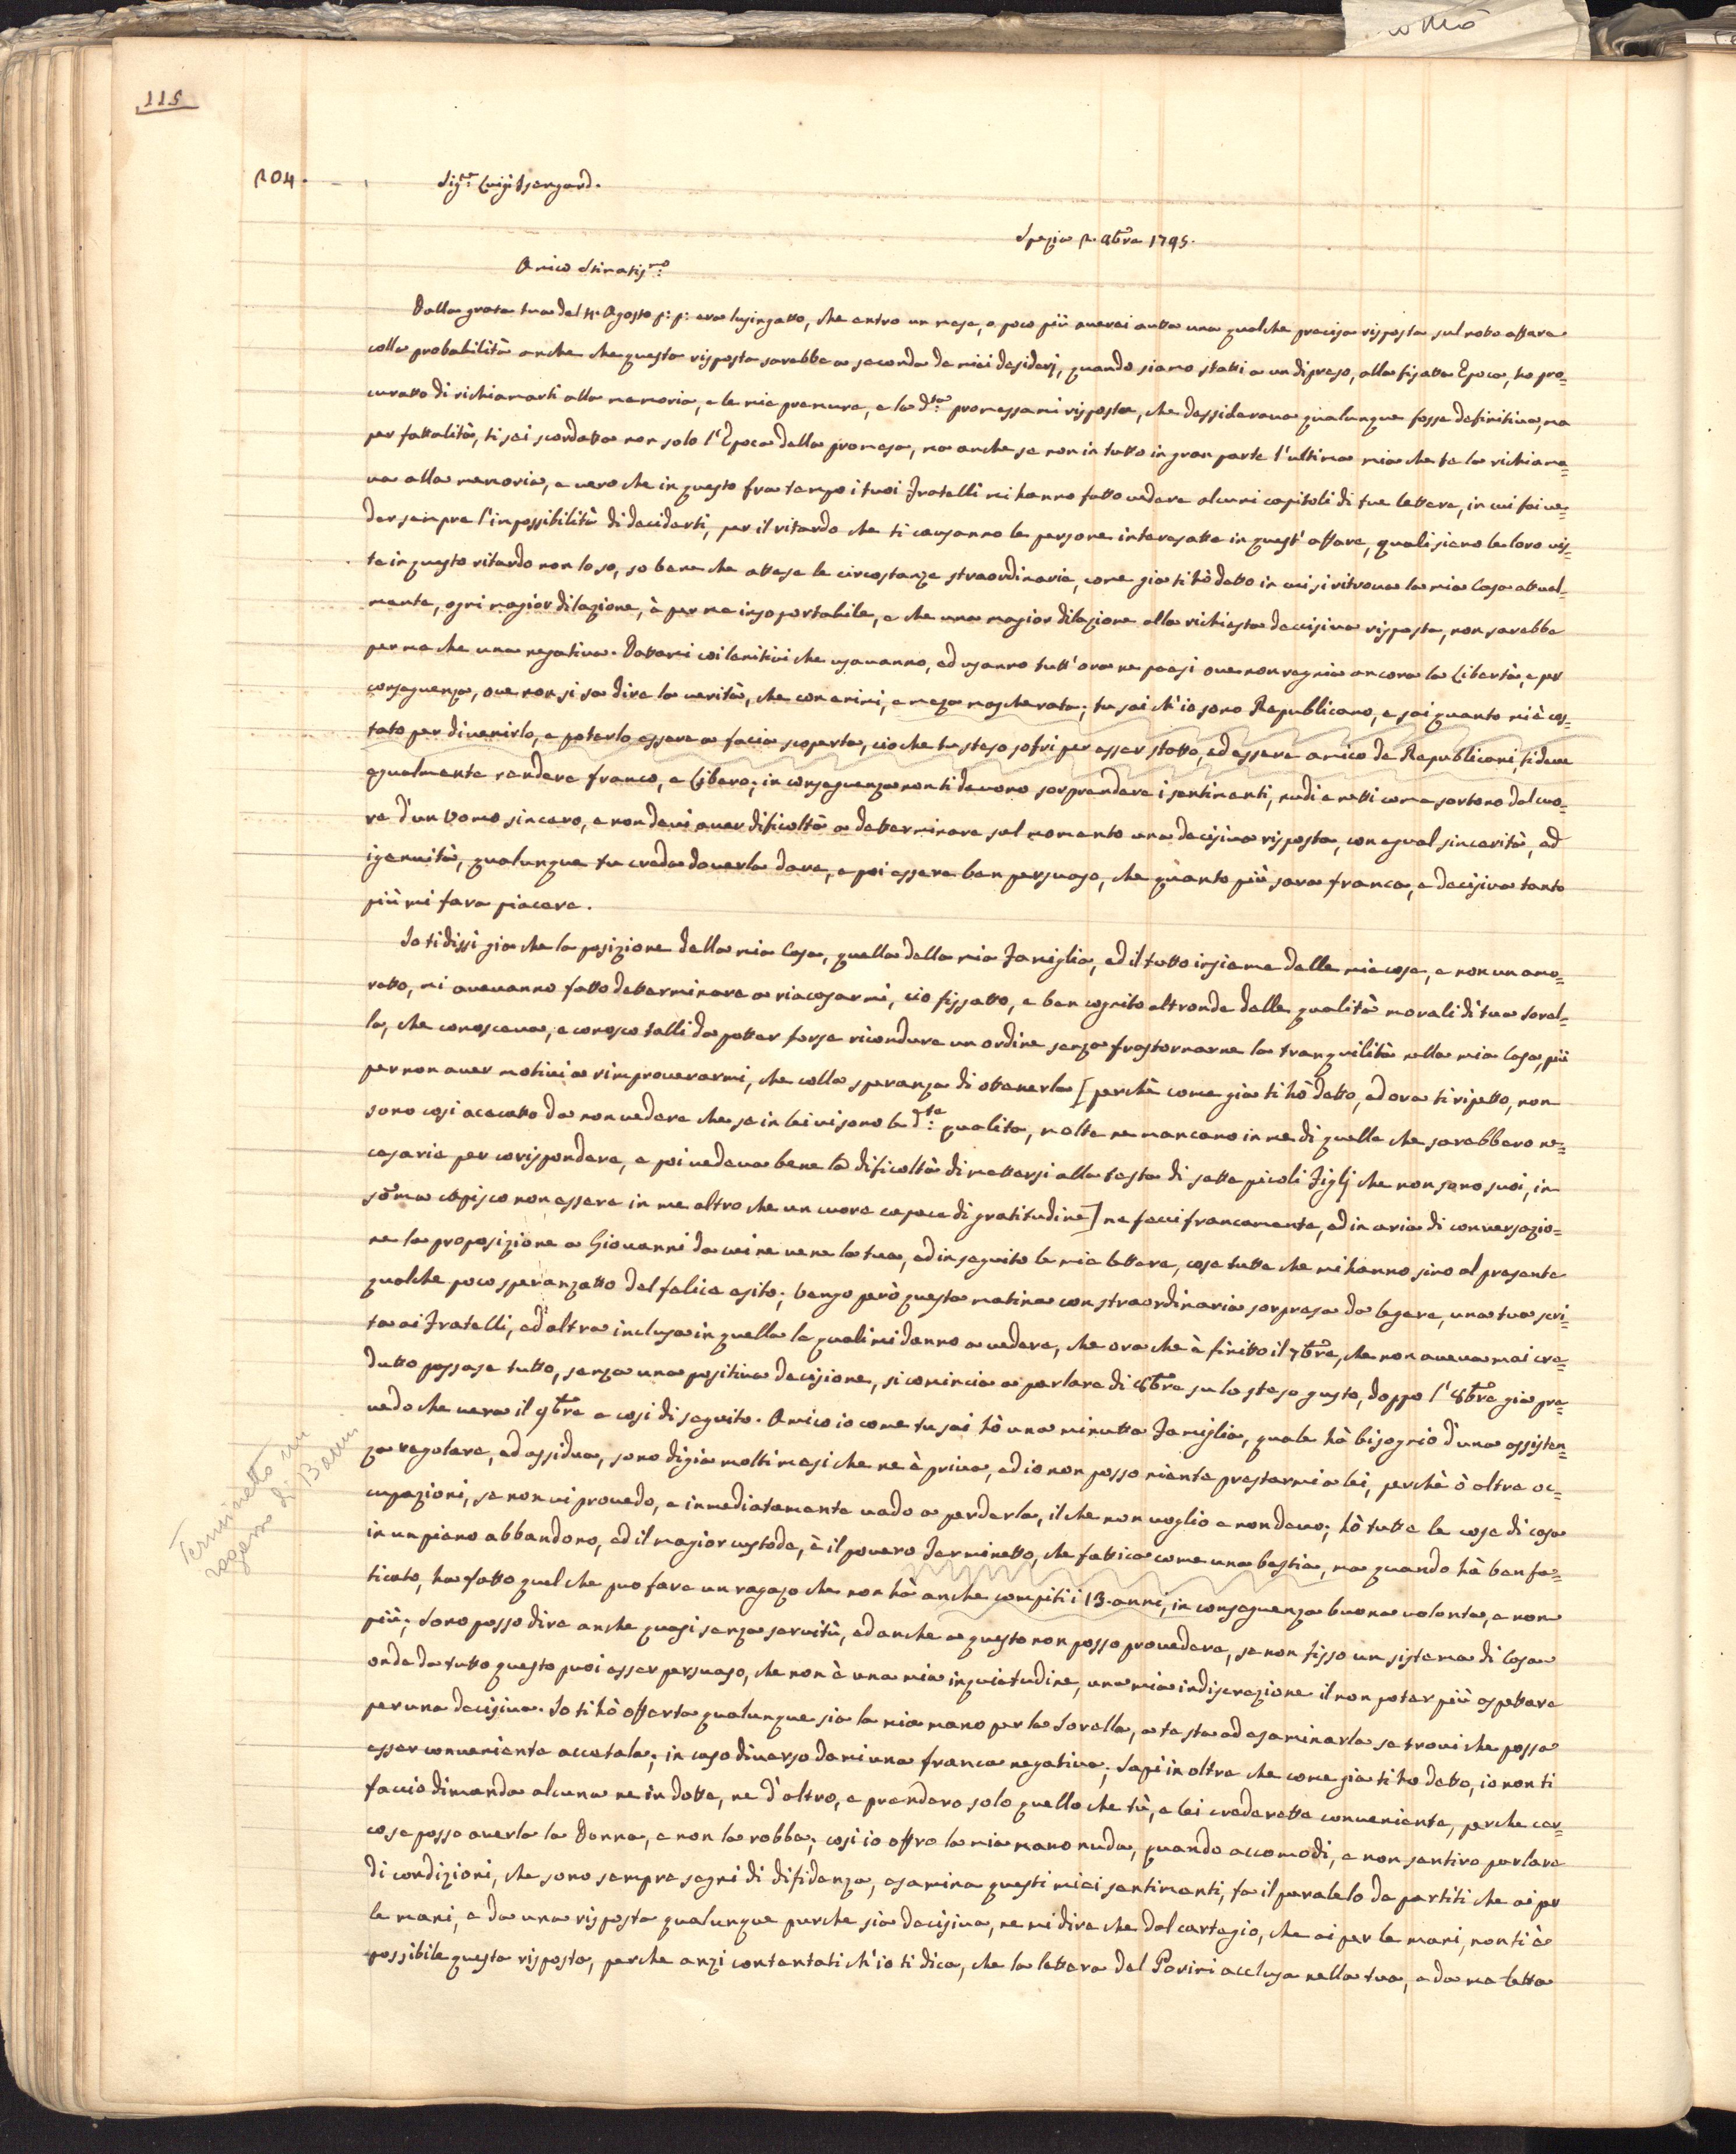 115
204.
Sig.re Luigi Isengard.
Spezia 2. 8bre 1795.
Amico Stimatis.mo
Dalla grata tua del 4. Agosto p: p: era lusingatto, che entro un mese, o poco più averei autta una qualche precisa risposta sul noto affare
colla probabilità anche che questa risposta sarebbe a seconda de miei desiderj, quando siamo statti a un di preso, alla fisatta Epoca, ho pro=
curatto di richiamarti alla memoria, e le mie premure, e la d.ta promessami risposta, che dessiderava qualunque fosse definitiva, ma
per fattalità, ti sei scordatto non solo l'Epoca della promesa, ma anche se non in tutto in gran parte l'ultima mia che te la richiama=
va alla memoria, e vero che in questo fra tempo i tuoi Fratelli mi hanno fatto vedere alcuni capitoli di tue lettere, in cui fai ve=
der sempre l'impossibilità di deciderti, per il ritardo che ti causanno le persone interesatte in quest'affare, quali siano le loro vis=
te in questo ritardo non lo so, so bene che attese le circostanze straordinarie, come gia ti hò detto in cui si ritrova la mia Casa attual=
mente, ogni magior dilazione, è per me insoportabile, e che una magior dilazione alla richiesta deccisiva risposta, non sarebbe
per me che una negativa. Dattemi coi lenitivi che usavanno, ed usanno tutt'ora ne paesi ove non regnia ancora la Libertà, e per
conseguenza, ove non si sa dire la verità, che con enimi, e meza mascherata; tu sai ch'io sono Republicano, e sai quanto mi è cos=
tato per divenirlo, e poterlo essere a facia scoperta, cio che tu steso sofri per esser statto, ed essere amico de Republicani, ti deve
egualmente rendere franco, e Libero; in conseguenza non ti devono sorprendere i sentimenti, nudi e netti come sortono dal cuo=
re d'un Uomo sincero, e non devi aver dificoltà a detterminare sul momento una decisiva risposta, con egual sincerità, ed
igenuità, qualunque tu creda doverla dare, e poi essere ben persuaso, che quanto più sara franca, e decisiva tanto
più mi fara piacere.
Io ti dissi gia che la posizione della mia Casa, quella della mia Famiglia, ed il tutto insieme delle mie cose, e non un amo=
retto, mi avevanno fatto detterminare a riacasarmi, cio fissatto, e ben cognito altronde delle qualità morali di tua Sorel=
la, che conosceva, e conosco talli da potter forse ricondure un ordine senza frastornarne la tranquilità nella mia Casa, più
per non aver motivi a rimproverarmi, che colla speranza di ottenerla [perchè come gia ti hò detto, ed ora ti ripetto, non
sono cosi acecatto da non vedere che se in lei vi sono le d.te qualita, molte ne mancano in me di quelle che sarebbero ne=
cesarie per corispondere, e poi vedeva bene la dificoltà di mettersi alla testa di sette picoli Figlj che non sono suoi, in
soma capisco non essere in me altro che un cuore capace di gratitudine] ne feci francamente, ed in aria di conversazio=
ne la proposizione a Giovanni da cui ne vene la tua, ed in seguito le mie lettere, cose tutte che mi hanno sino al presente
qualche poco speranzatto del felice esito; vengo però questa matina con straordinaria sorpresa da legere, una tua scri=
ta ai Fratelli, ed altra inclusa in quella le quali mi danno a vedere, che ora che è finitto il 7bre, che non aveva mai cre=
dutto passase tutto, senza una positiva decisione, si comincia a parlare di 8bre su lo steso gusto, doppo l'8bre gia pre=
vedo che verà il 9bre e cosi di seguito. Amico io come tu sai hò una minutta Famiglia, quale hà bisognio d'una assisten=
za regolare, ed assidua, sono digia molti mesi che ne è priva, ed io non posso niente prestarmi a lei, perchè ò altre oc=
cupazioni, se non vi provedo, e inmediatamente vado a perderla, il che non voglio e non devo; hò tutte le cose di casa
in un pieno abbandono, ed il magior custode, è il povero Terminetto, che fattica come una bestia, ma quando hà ben fa=
ticato, ha fatto quel che puo fare un ragazo che non hà anche compiti i 13. anni, in conseguenza buona volonta, e non
più; Sono posso dire anche quasi senza servitù, ed anche a questo non posso provedere, se non fisso un sistema di Casa
onde da tutto questo puoi esser persuaso, che non è una mia inquietudine, una mia indiscrezione il non poter più aspettare
per una decisiva. Io ti hò offerta qualunque sia la mia mano per la Sorella, a te sta ad esaminarla se trovi che possa
esser conveniente accetala; in caso diverso dami una franca negativa; Sapi in oltre che come gia ti ho detto, io non ti
faccio dimanda alcuna ne in dotte, ne d'altro, e prendero solo quello che tù, e lei crederette conveniente, perche cer=
co se posso averla la Donna, e non la robba; cosi io offro la mia mano nuda, quando accomodi, e non sentiro parlare
di condizioni, che sono sempre segni di difidenza, esamina questi miei sentimenti, fa il paralelo de partiti che ai per
le mani, e da una risposta qualunque purche sia decisiva, ne mi dire che dal cartegio, che ai per le mani, non ti è
possibile questa risposta, perche anzi contentati ch'io ti dica, che la lettera del Pavini acclusa nella tua, e da me letta
Terminetto un
ragazzo di 13 anni